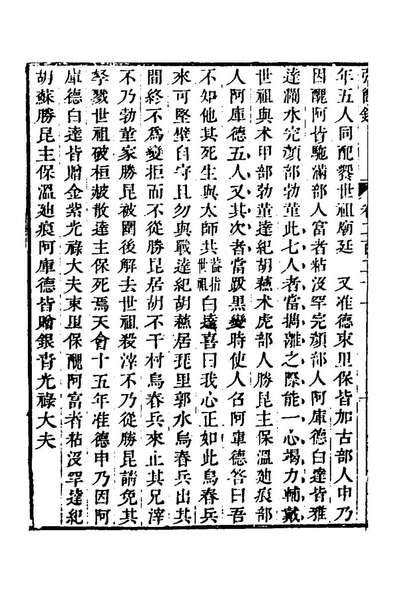 年五人同配饗世祖廟廷 又准德東里保皆加古部人申乃
因醜阿皆馳滿部人富者粘沒罕完顏部人阿庫德白達皆雅
達瀾水完顏部勃堇此七人者當擕離之際能一心竭力輔戴
世祖與术甲部勃堇達紀胡蘓术虎部人勝昆主保溫廸痕部
人阿庫德五人又其次者當跋黑變時使人召阿庫德答曰吾
不如他其死生與太師共蓋指世祖白達喜曰我心正如此烏春兵
來可堅壁自守且勿與戰達紀胡蘓居琵里郭水烏春兵出其
間終不爲變拒而不從勝昆居胡不干村烏春兵來止其兄滓
不乃勃堇家勝昆被圍後解去世祖殺滓不乃從勝昆請免其
孥戮世祖破桓㪚散達主保死焉天會十五年准德申乃因阿
庫德白達皆贈金紫光祿大夫東里保醜阿富者粘沒罕達紀
胡蘇勝昆主保溫廸痕阿庫德皆贈銀青光祿大夫